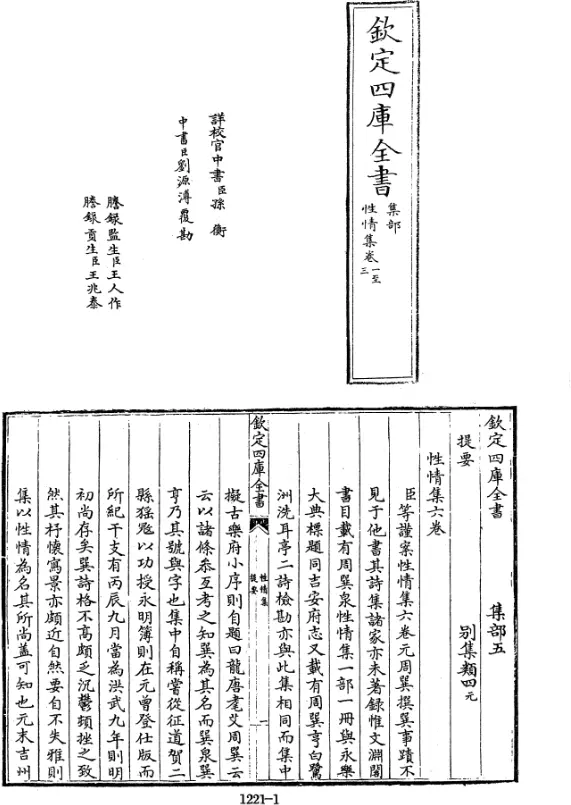 欽定四庫全書
集部
性情集卷一至三
詳校官中書臣孫衡
中書臣劉源溥覆勘
謄錄監生臣王人作
謄錄貢生臣王兆泰
欽定四庫全書
集部五
提要
別集類四元
性情集六卷
臣等謹案性情集六卷元周巽撰巽事蹟不
見于他書其詩集諸家亦未著錄惟文淵閣
書目載有周巽泉性情集一部一冊與永樂
大典標題同吉安府志又載有周巽亨白鷺
洲洗耳亭二詩檢勘亦與此集相同而集中
欽定四庫全書
性情集
提要
一
擬古樂府小序則自題曰龍唐耄艾周巽云
云以諸條叅互考之知巽為其名而巽泉巽
亨乃其號與字也集中自稱嘗從征道賀二
縣猺㓂以功授永明簿則在元曾登仕版而
所紀干支有丙辰九月當為洪武九年則明
初尚存矣巽詩格不高頗乏沉鬱頓挫之致
然其抒懷寫景亦頗近自然要自不失雅則
集以性情為名其所尚蓋可知也元末吉州
1221-1